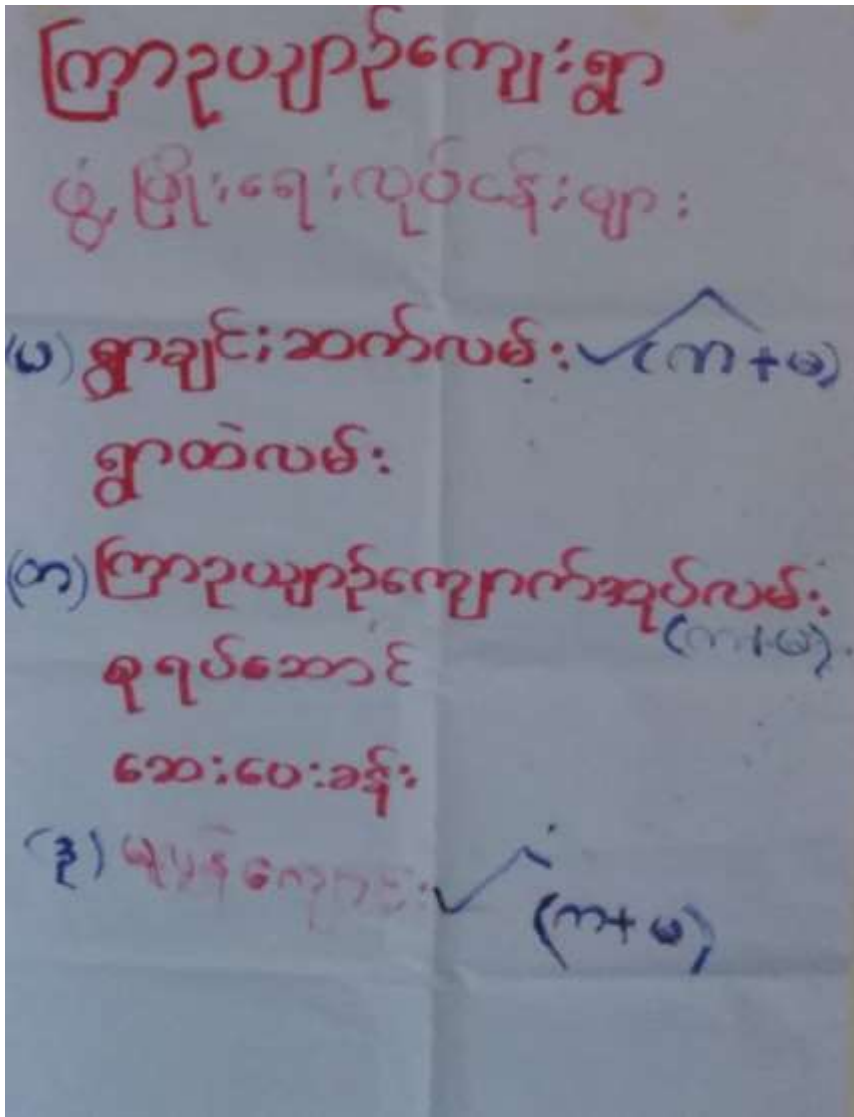 ကြာဥယျာဉ်ကျေးရွာ
ဖွံ့ဖြိုးရေးလုပ်ငန်းများ
(ပ) ရွာချင်းဆက်လမ်း ✓ (က+မ)
ရွာတဲလမ်း
(တ) ကြာဥယျာဉ်ကျောက်အုပ်လမ်း
(က+မ)
စုရပ်ဆောင်
ဆေးပေးခန်း
(ဒု) မူပြန်ကျောင်း ✓ (က+မ)